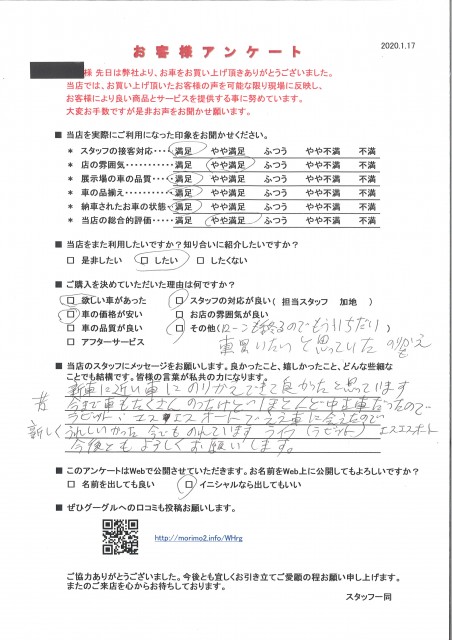 お客様アンケート
2020.1.17
様 先日は弊社より、お車をお買い上げ頂きありがとうございました。
当店では、お買い上げ頂いたお客様の声を可能な限り現場に反映し、
お客様により良い商品とサービスを提供する事に努めています。
大変お手数ですが是非お声をお聞かせ願います。
■ 当店を実際にご利用になった印象をお聞かせください。
* スタッフの接客対応････ 満足 やや満足 ふつう やや不満 不満
* 店の雰囲気･･････････ 満足 やや満足 ふつう やや不満 不満
* 展示場の車の品質･････ 満足 やや満足 ふつう やや不満 不満
* 車の品揃え･･････････ 満足 やや満足 ふつう やや不満 不満
* 納車されたお車の状態･･ 満足 やや満足 ふつう やや不満 不満
* 当店の総合的評価･････ 満足 やや満足 ふつう やや不満 不満
■ 当店をまた利用したいですか？知り合いに紹介したいですか？
□ 是非したい □ したい □ したくない
■ ご購入を決めていただいた理由は何ですか？
□ 欲しい車があった □ スタッフの対応が良い（ 担当スタッフ 加地 ）
□ 車の価格が安い □ お店の雰囲気が良い
□ 車の品質が良い □ その他(ローンも終るのでもう1ちだい)
□ アフターサービス 車買いたいと思っていた のりかえも
■ 当店のスタッフにメッセージをお願いします。良かったこと、嬉しかったこと、どんな些細な
ことでも結構です。皆様の言葉が私共の力になります。
新車に近い車にのりかえできて良かったと思っています
今まで車もたくさんのったけどほとんど中古車だったので
新しく うれしいかった 今でものれています ライフ(ラビット) エスエスポート
今後ともよろしくお願いします。
■ このアンケートはWebで公開させていただきます。お名前をWeb上に公開してもよろしいですか？
□ 名前を出しても良い □ イニシャルなら出してもいい
■ ぜひグーグルへの口コミも投稿お願します。
http://morimo2.info/WHrg
ご協力ありがとうございました。今後とも宜しくお引き立てご愛願の程お願い申し上げます。
またのご来店を心からお待ちしております。
スタッフ一同